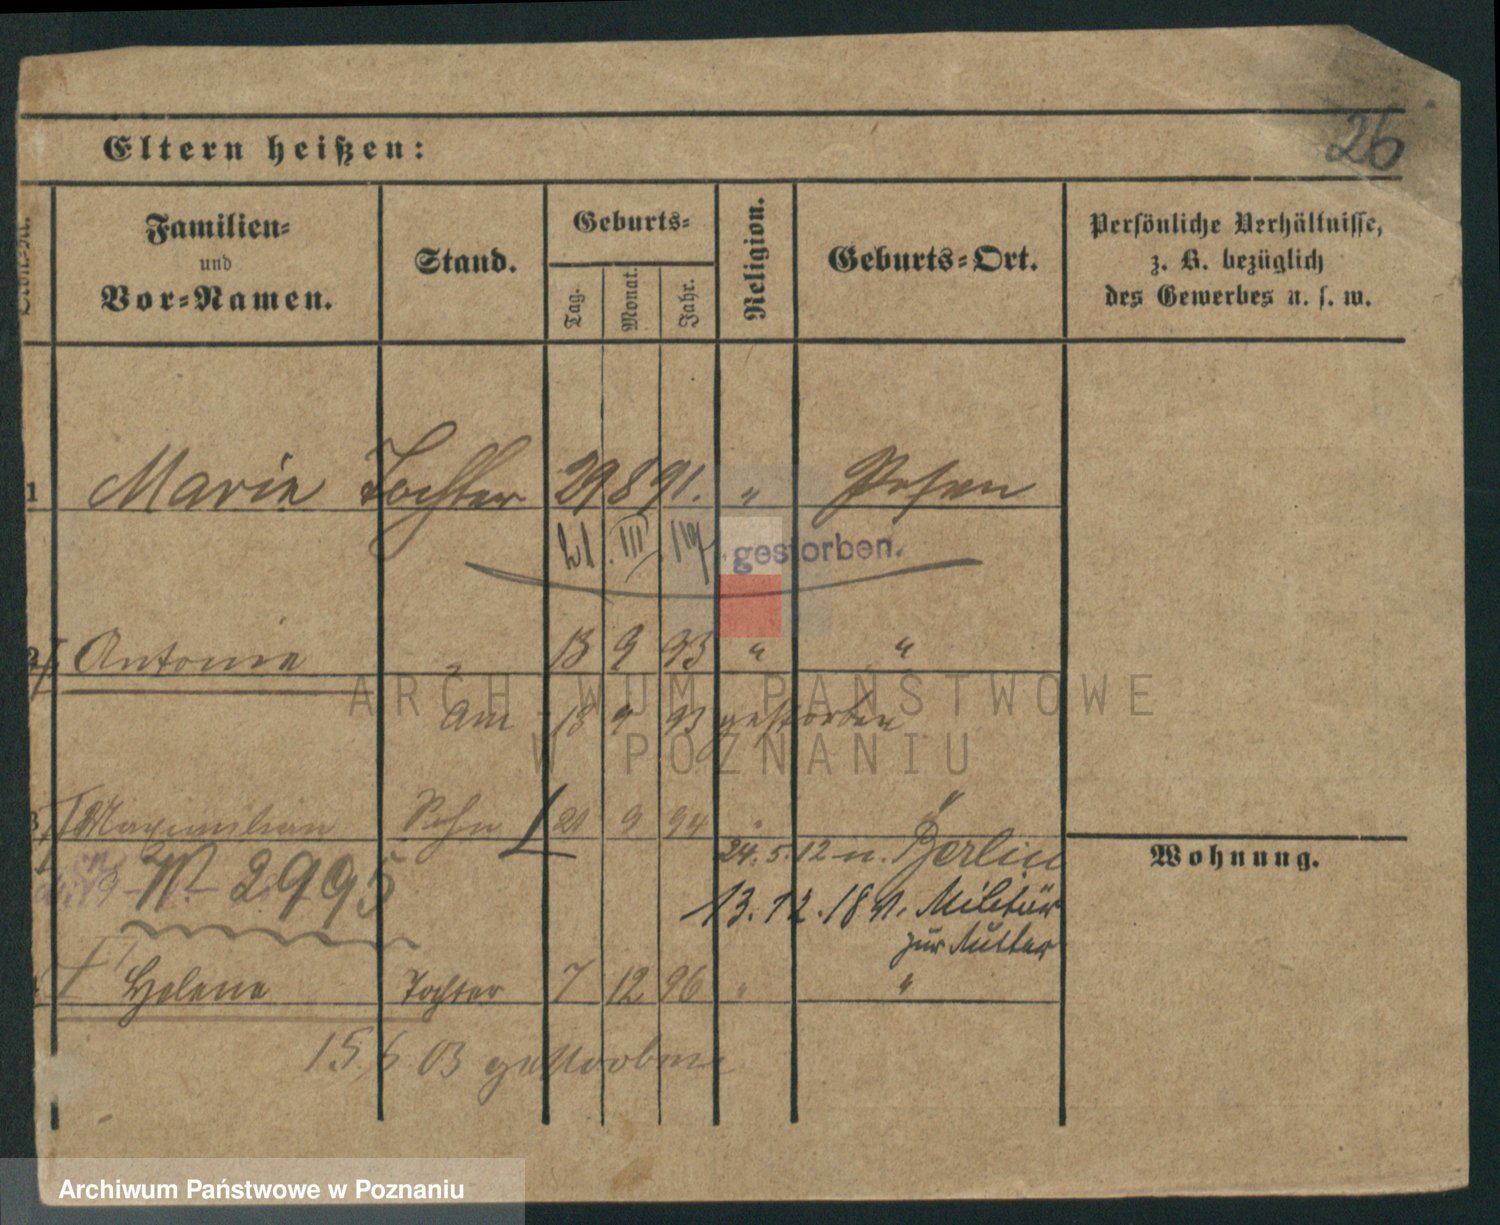 26
Eltern heißen:
Familien=
und
Vor=Namen.
Stand.
Geburts=
Tag.
Monat.
Jahr.
Religion.
Geburts=Ort.
Persönliche Verhältnisse,
z. B. bezüglich
des Gewerbes u. s. w.
1 Marie Tochter 29 8 91. " Posen
III gestorben.
2 Antonie " 13 9 93 " "
Am 18 9 93 gestorben
3 Maximilian Sohn 21 9 94 " "
24. 5. 12 n. Berlin
N. 2995
13. 12. 18 v. Militär
zur Mutter
Helene Tochter 7 12 96 " "
15. 6 03 gestorben
Wohnung.
ARCHIWUM PAŃSTWOWE
W POZNANIU
Archiwum Państwowe w Poznaniu